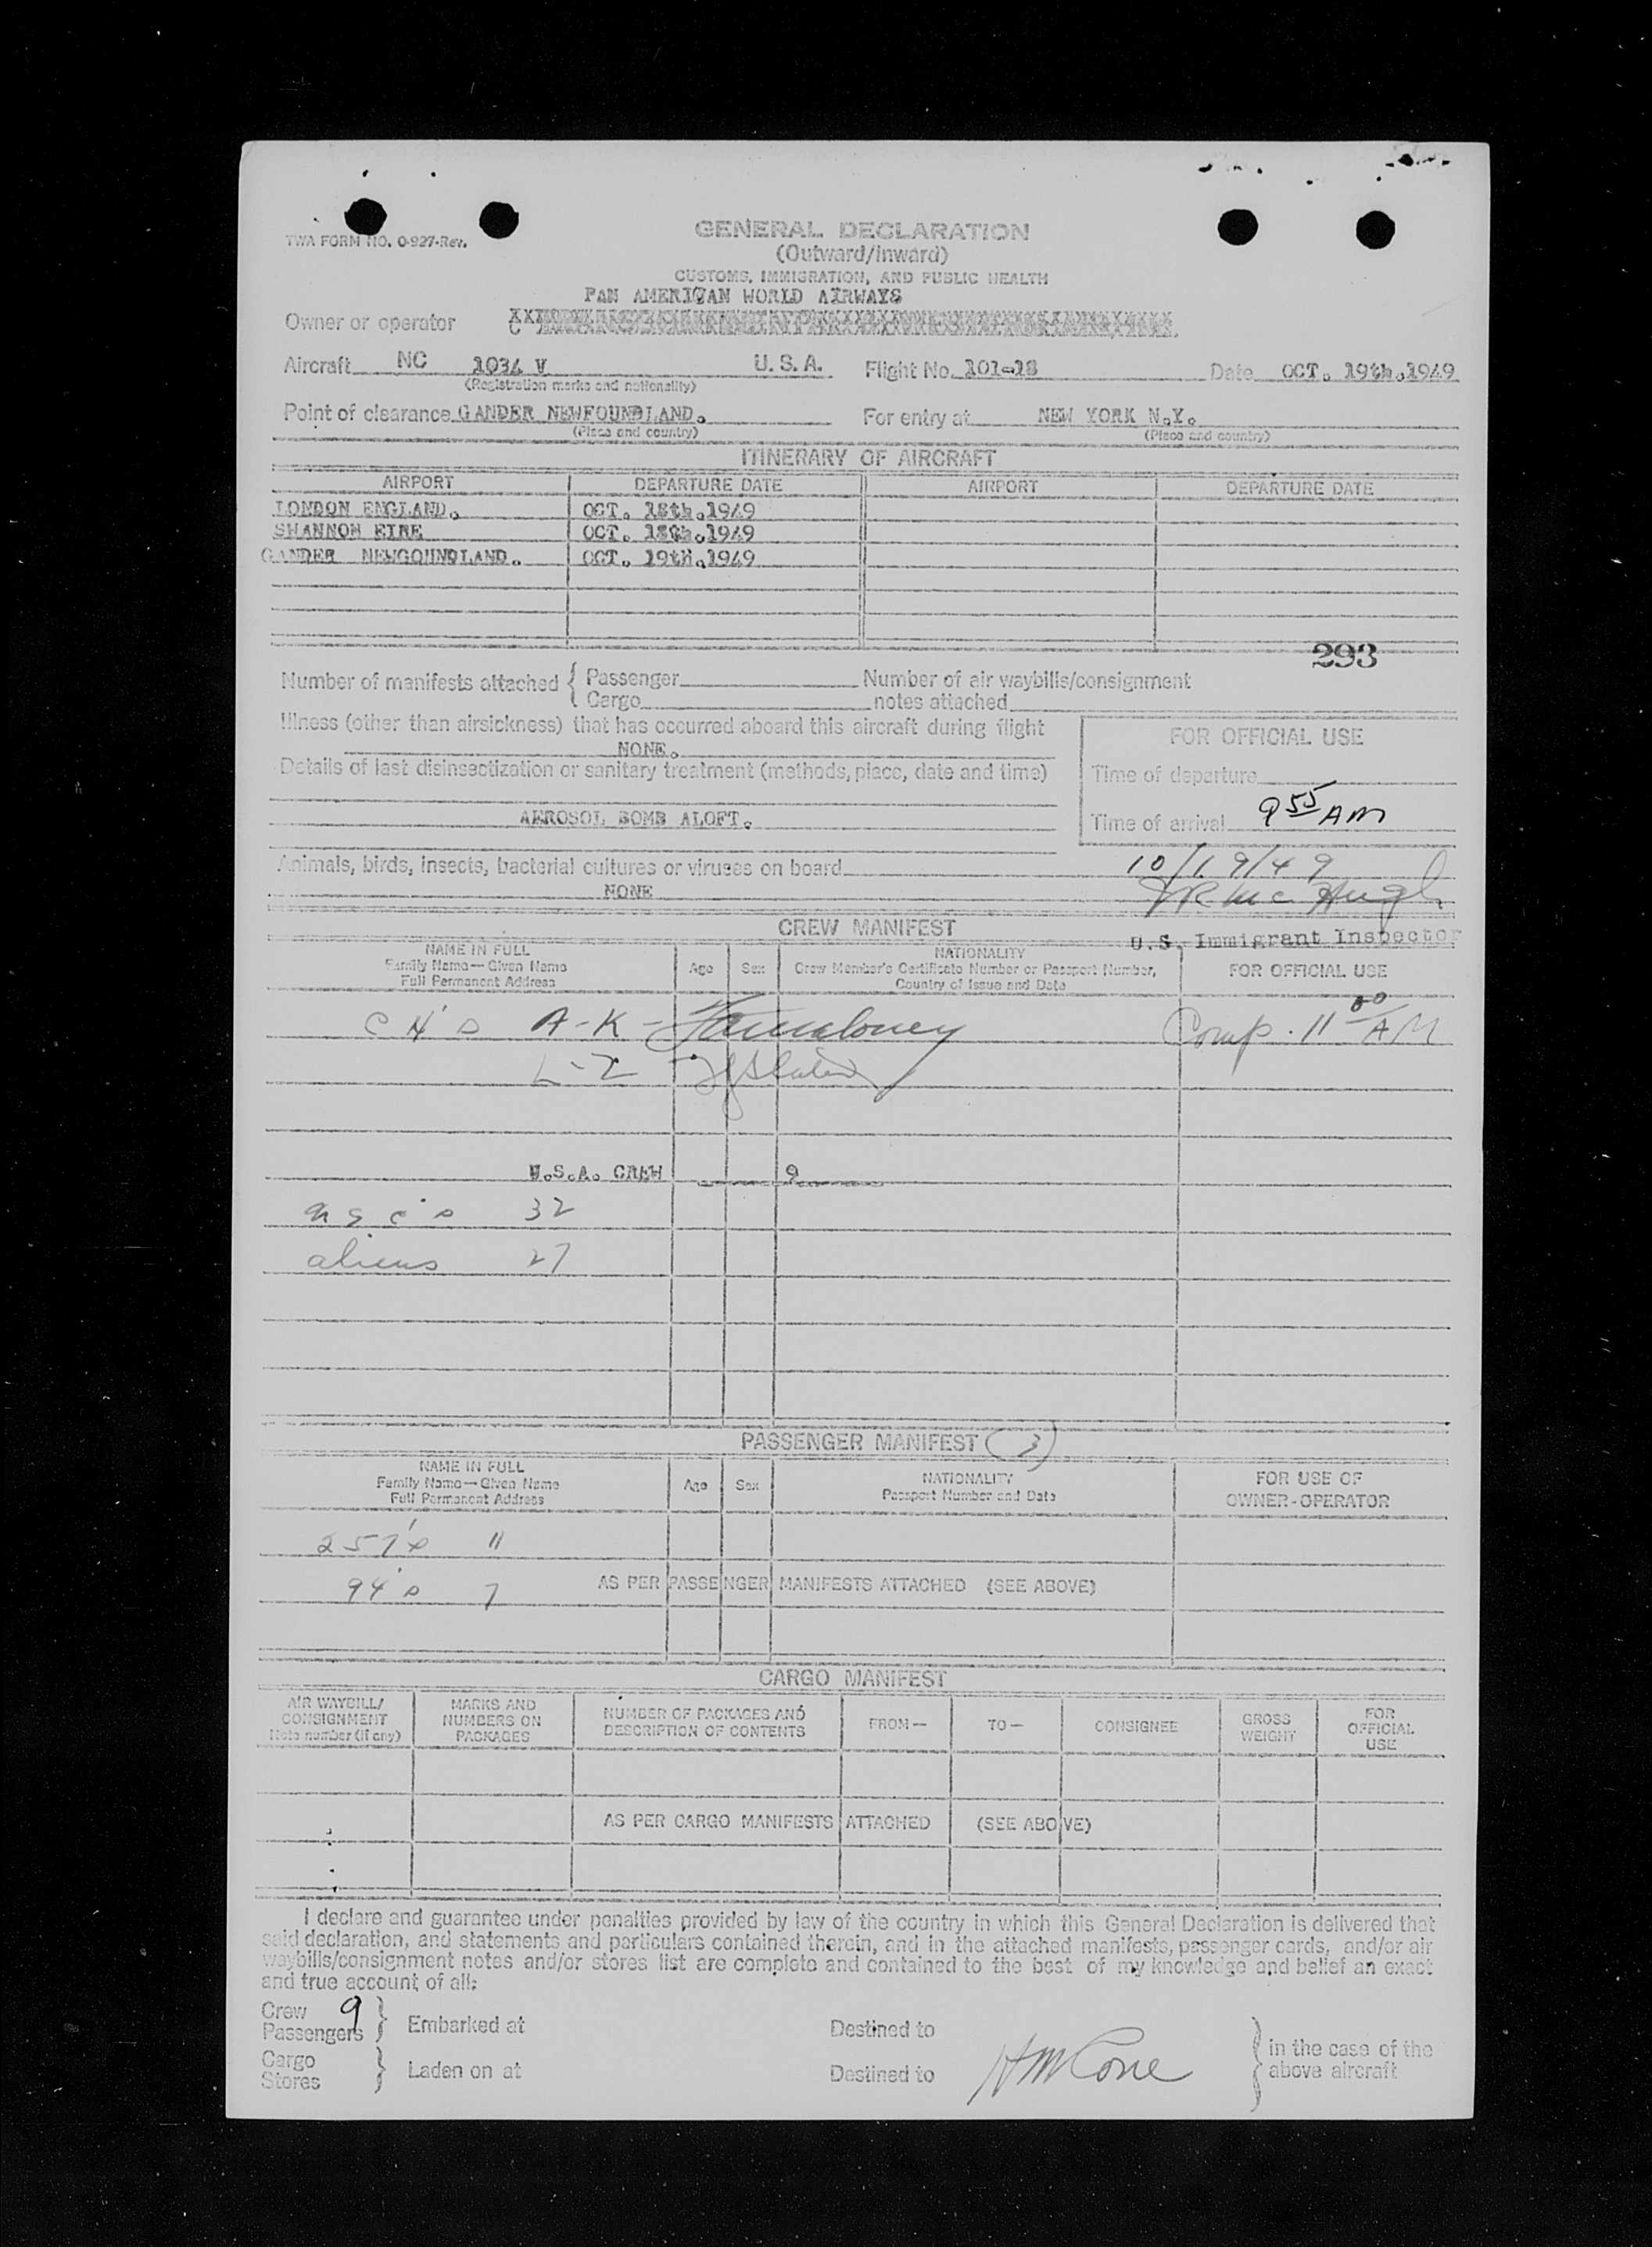 TWA FORM NO. O-927-Rev.
GENERAL DECLARATION
(Outward/Inward)
CUSTOMS, IMMIGRATION, AND PUBLIC HEALTH
PAN AMERICAN WORLD AIRWAYS
Owner or operator
Aircraft NC 1034 V U. S. A. Flight No. 101-18 Date OCT. 19th.1949
(Registration marks and nationality)
Point of clearance GANDER NEWFOUNDLAND. For entry at NEW YORK N.Y.
(Place and country) (Place and country)
ITINERARY OF AIRCRAFT
AIRPORT DEPARTURE DATE AIRPORT DEPARTURE DATE
LONDON ENGLAND. OCT. 18th.1949
SHANNON EIRE OCT. 18th.1949
GANDER NEWGOUNDLAND. OCT. 19th.1949
293
Number of manifests attached { Passenger Number of air waybills/consignment
Cargo notes attached
Illness (other than airsickness) that has occurred aboard this aircraft during flight
NONE.
FOR OFFICIAL USE
Details of last disinsectization or sanitary treatment (methods, place, date and time)
Time of departure
AEROSOL BOMB ALOFT.
Time of arrival 9 55 AM
Animals, birds, insects, bacterial cultures or viruses on board
10/19/49
NONE
Mc Hugh
CREW MANIFEST
U.S. Immigrant Inspector
NAME IN FULL
Family Name—Given Name
Full Permanent Address
Age Sex
NATIONALITY
Crew Member's Certificate Number or Passport Number,
Country of Issue and Date
FOR OFFICIAL USE
A-K - Comp. 11 00 AM
L-Z
U.S.A. CREW 9
32
aliens 27
PASSENGER MANIFEST (3)
NAME IN FULL
Family Name—Given Name
Full Permanent Address
Age Sex
NATIONALITY
Passport Number and Date
FOR USE OF
OWNER-OPERATOR
257's 11
94's 7 AS PER PASSENGER MANIFESTS ATTACHED (SEE ABOVE)
CARGO MANIFEST
AIR WAYBILL/
CONSIGNMENT
Note number (if any)
MARKS AND
NUMBERS ON
PACKAGES
NUMBER OF PACKAGES AND
DESCRIPTION OF CONTENTS
FROM—
TO—
CONSIGNEE
GROSS
WEIGHT
FOR
OFFICIAL
USE
AS PER CARGO MANIFESTS ATTACHED (SEE ABOVE)
I declare and guarantee under penalties provided by law of the country in which this General Declaration is delivered that
said declaration, and statements and particulars contained therein, and in the attached manifests, passenger cards, and/or air
waybills/consignment notes and/or stores list are complete and contained to the best of my knowledge and belief an exact
and true account of all:
Crew 9
Passengers } Embarked at Destined to
Cargo
Stores } Laden on at Destined to
HM Cone
in the case of the
above aircraft